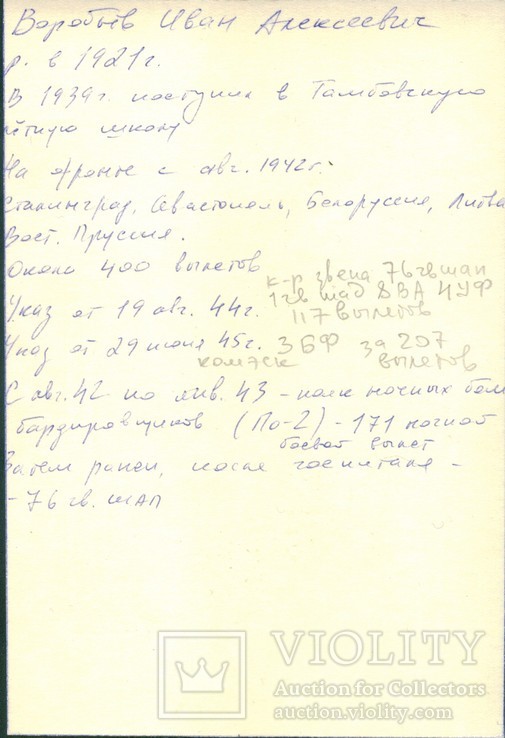 Воробьёв Иван Алексеевич
р. в 1921г.
В 1939г. поступил в Тамбовскую
лётную школу
На фронте с авг. 1942г.
Сталинград, Севастополь, Белоруссия, Литва
Вост. Пруссия.
Около 400 вылетов
к-р звена 76 гвшап
1 гв шад 8 ВА 4УФ
117 вылетов
Указ от 19 авг. 44г.
Указ от 29 июня 45г. 3 БФ за 207
комэск вылетов
С авг. 42 по янв. 43 - полк ночных бом
бардировщиков (По-2) - 171 ночной
боевой вылет
Затем ранен, после госпиталя -
- 76 гв. ШАП
VIOLITY
Auction for Collectors
auction.violity.com